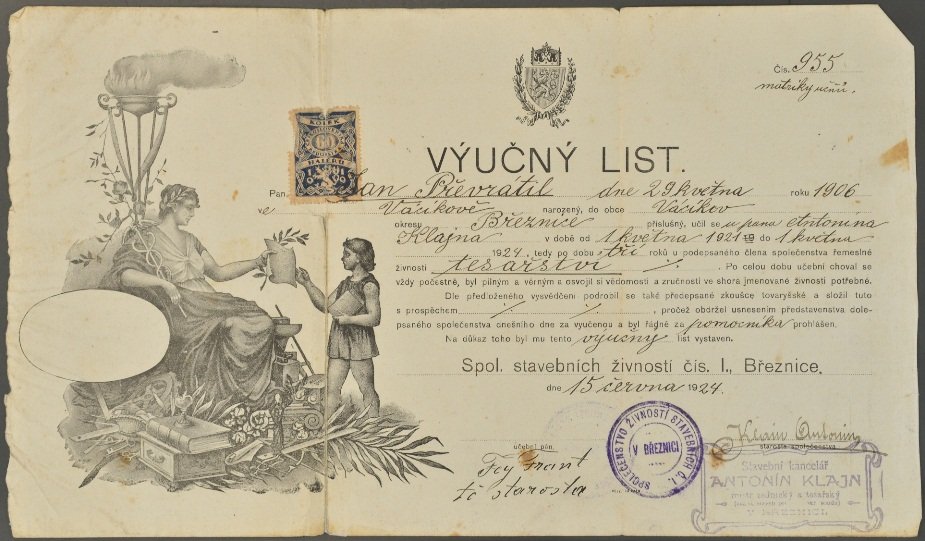 Čís. 955
matriky učňů.
KOLEK
60
HALÉŘŮ
1919
VÝUČNÝ LIST.
Pan Jan Převrátil dne 29 května roku 1906
ve Vácíkově narozený, do obce Vácíkov
okresu Březnice příslušný, učil se u pana Antonína
Klajna v době od 1 května 1921 19 do 1 května
1924, tedy po dobu tří roků u podepsaného člena společenstva řemeslné
živnosti tesařství ./. Po celou dobu učební choval se
vždy počestně, byl pilným a věrným a osvojil si vědomosti a zručnosti ve shora jmenované živnosti potřebné.
Dle předloženého vysvědčení podrobil se také předepsané zkoušce tovaryšské a složil tuto
s prospěchem ./. ./. , pročež obdržel usnesením představenstva dole-
psaného společenstva dnešního dne za vyučenou a byl řádně za pomocníka prohlášen.
Na důkaz toho byl mu tento výučný list vystaven.
Spol. stavebních živností čís. I., Březnice.
dne 15 června 1924.
SPOLEČENSTVO ŽIVNOSTÍ STAVEBNÍCH Č. I.
V BŘEZNICI
Klajn Antonín
starosta společenstva
učební pán.
starosta
Stavební kancelář
ANTONÍN KLAJN
mistr zednický a tesařský
V BŘEZNICI.